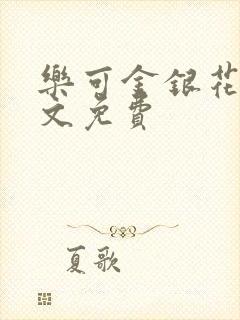 樂可金銀花
文免費
夏歌